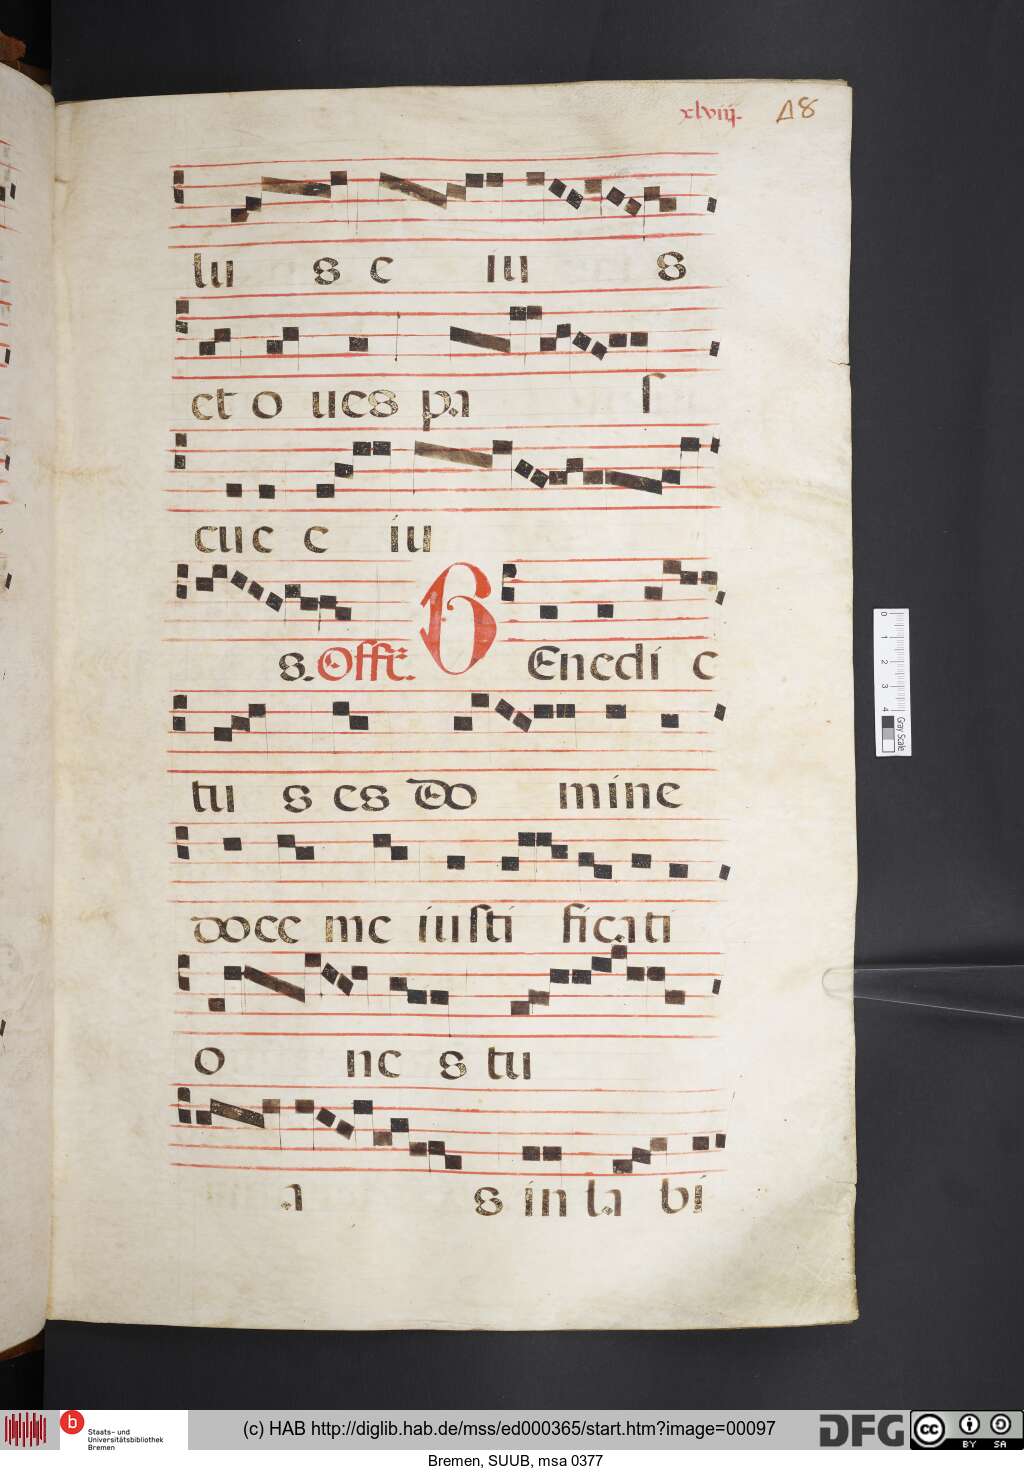 xlviij. 48
lu s e iu s
et o ues pa s
cue e iu
s. Offr. Benedi c
tu s es Do mine
doce me iusti ficati
o ne s tu
a s in la bi
0 1 2 3 4
Gray Scale
b Staats- und
Universitätsbibliothek
Bremen
(c) HAB http://diglib.hab.de/mss/ed000365/start.htm?image=00097
DFG
cc BY SA
Bremen, SUUB, msa 0377